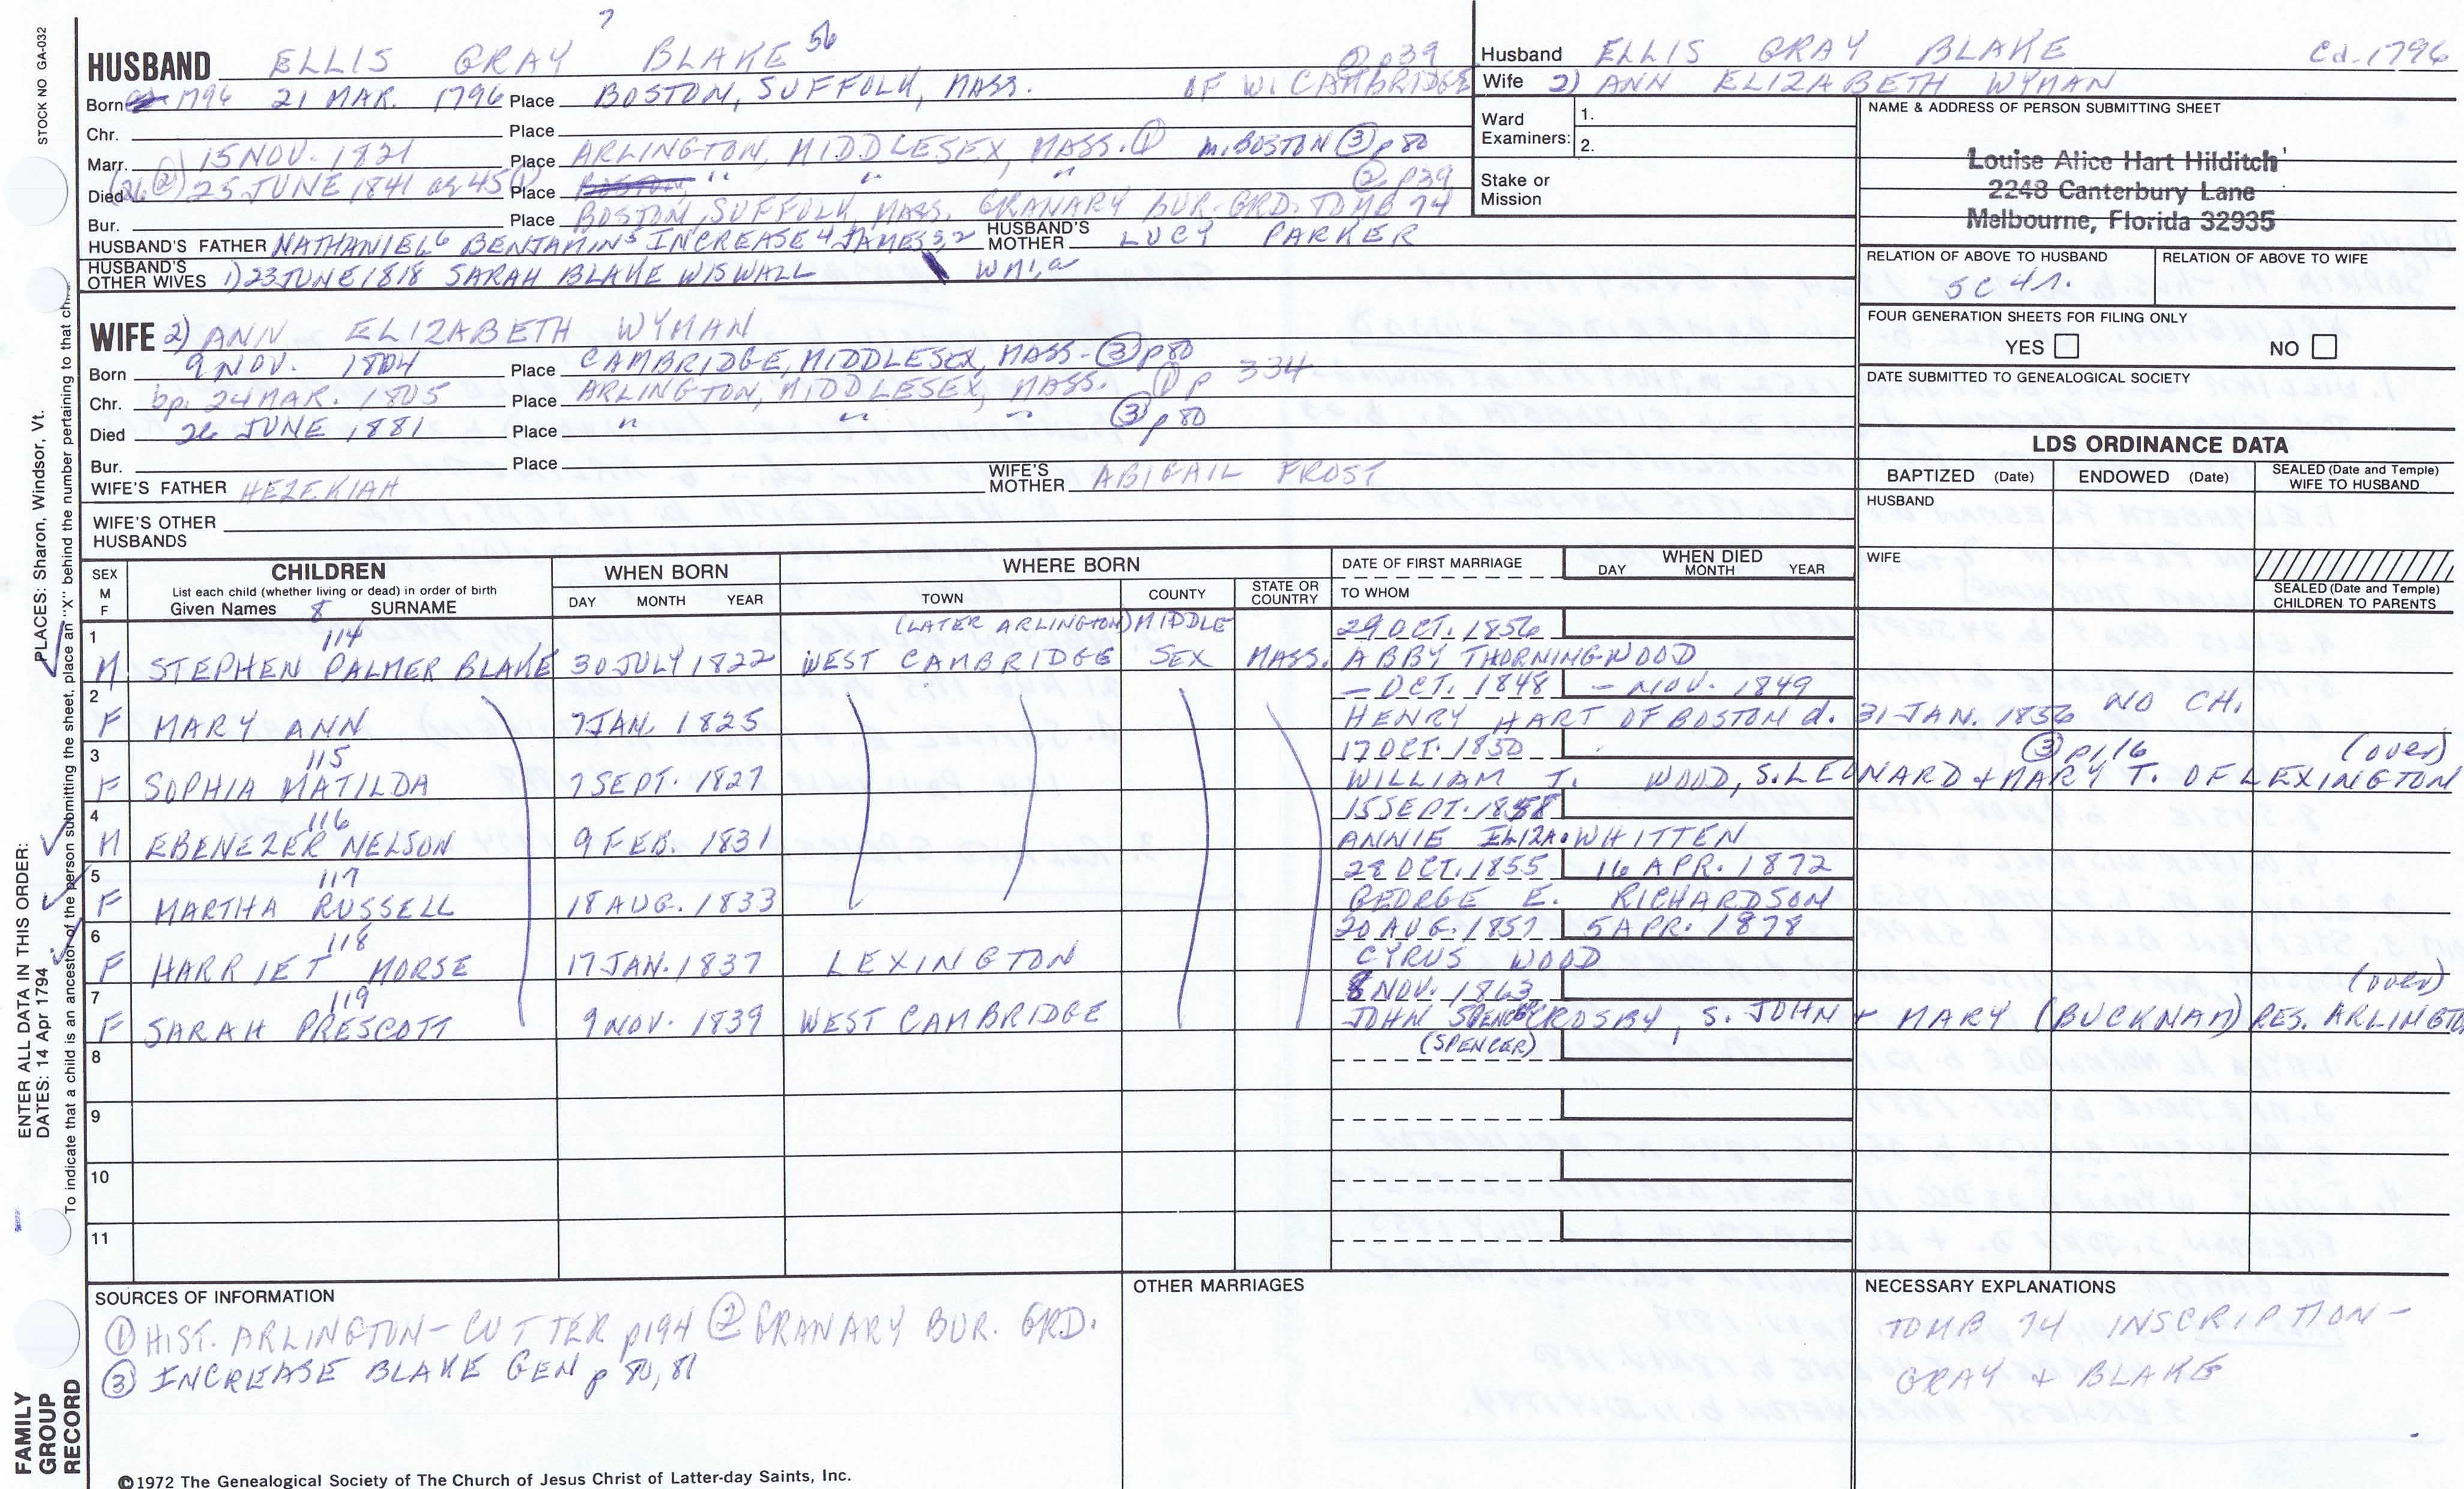 STOCK NO GA-032
PLACES: Sharon, Windsor, Vt.
ENTER ALL DATA IN THIS ORDER:
DATES: 14 Apr 1794
To indicate that a child is an ancestor of the person submitting the sheet, place an "X" behind the number pertaining to that
FAMILY
GROUP
RECORD
7
HUSBAND ELLIS GRAY BLAKE 56
② p39
Born 1796 21 MAR. 1796 Place BOSTON, SUFFOLK, MASS. OF W. CAMBRIDGE
Chr. Place
Marr. 15 NOV. 1821 Place ARLINGTON, MIDDLESEX, MASS. ① m. BOSTON ③ p 80
Died (26 ②) 25 JUNE 1841 ag 45 (1) Place BOSTON, " " " ② p39
Bur. Place BOSTON, SUFFOLK, MASS. GRANARY BUR. GRD. TOMB 74
HUSBAND'S FATHER NATHANIEL 6 BENJAMIN 5 INCREASE 4 JAMES 3,2 HUSBAND'S MOTHER LUCY PARKER
HUSBAND'S OTHER WIVES 1) 23 JUNE 1818 SARAH BLAKE WISWALL
WIFE 2) ANN ELIZABETH WYMAN
Born 9 NOV. 1804 Place CAMBRIDGE, MIDDLESEX, MASS - ③ p 80
Chr. bp. 24 MAR. 1805 Place ARLINGTON, MIDDLESEX, MASS. ① p 334
Died 26 JUNE 1881 Place " " " ③ p 80
Bur. Place
WIFE'S FATHER HEZEKIAH WIFE'S MOTHER ABIGAIL FROST
WIFE'S OTHER HUSBANDS
Husband ELLIS GRAY BLAKE Cd. 1796
Wife 2) ANN ELIZABETH WYMAN
Ward Examiners: 1.
2.
Stake or Mission
NAME & ADDRESS OF PERSON SUBMITTING SHEET
Louise Alice Hart Hilditch
2248 Canterbury Lane
Melbourne, Florida 32935
RELATION OF ABOVE TO HUSBAND RELATION OF ABOVE TO WIFE
5C 4r.
FOUR GENERATION SHEETS FOR FILING ONLY
YES NO
DATE SUBMITTED TO GENEALOGICAL SOCIETY
LDS ORDINANCE DATA
BAPTIZED (Date) ENDOWED (Date) SEALED (Date and Temple) WIFE TO HUSBAND
HUSBAND
WIFE
SEALED (Date and Temple) CHILDREN TO PARENTS
SEX M F
CHILDREN
List each child (whether living or dead) in order of birth
Given Names 8 SURNAME
WHEN BORN
DAY MONTH YEAR
WHERE BORN
TOWN COUNTY STATE OR COUNTRY
DATE OF FIRST MARRIAGE
TO WHOM
WHEN DIED
DAY MONTH YEAR
1 114 (LATER ARLINGTON) MIDDLE 29 OCT. 1856
M STEPHEN PALMER BLAKE 30 JULY 1822 WEST CAMBRIDGE SEX MASS. ABBY THORNING WOOD
2 - OCT. 1848 - NOV. 1849
F MARY ANN 7 JAN. 1825 HENRY HART OF BOSTON d. 31 JAN. 1856 NO CH.
3 115 17 OCT. 1850 ③ p116 (over)
F SOPHIA MATILDA 7 SEPT. 1827 WILLIAM T. WOOD, S. LEONARD + MARY T. OF LEXINGTON
4 116 15 SEPT. 1858
M EBENEZER NELSON 9 FEB. 1831 ANNIE ELIZA. WHITTEN
5 117 28 OCT. 1855 16 APR. 1872
F MARTHA RUSSELL 18 AUG. 1833 GEORGE E. RICHARDSON
6 118 20 AUG. 1857 5 APR. 1878
F HARRIET MORSE 17 JAN. 1837 LEXINGTON CYRUS WOOD
7 119 8 NOV. 1863 (over)
F SARAH PRESCOTT 9 NOV. 1839 WEST CAMBRIDGE JOHN SPENCER CROSBY, S. JOHN + MARY (BUCKNAM) RES. ARLINGTON
8 (SPENCER)
9
10
11
SOURCES OF INFORMATION
① HIST. ARLINGTON - CUTTER p194 ② GRANARY BUR. GRD.
③ INCREASE BLAKE GEN p 80, 81
OTHER MARRIAGES
NECESSARY EXPLANATIONS
TOMB 74 INSCRIPTION -
GRAY + BLAKE
©1972 The Genealogical Society of The Church of Jesus Christ of Latter-day Saints, Inc.